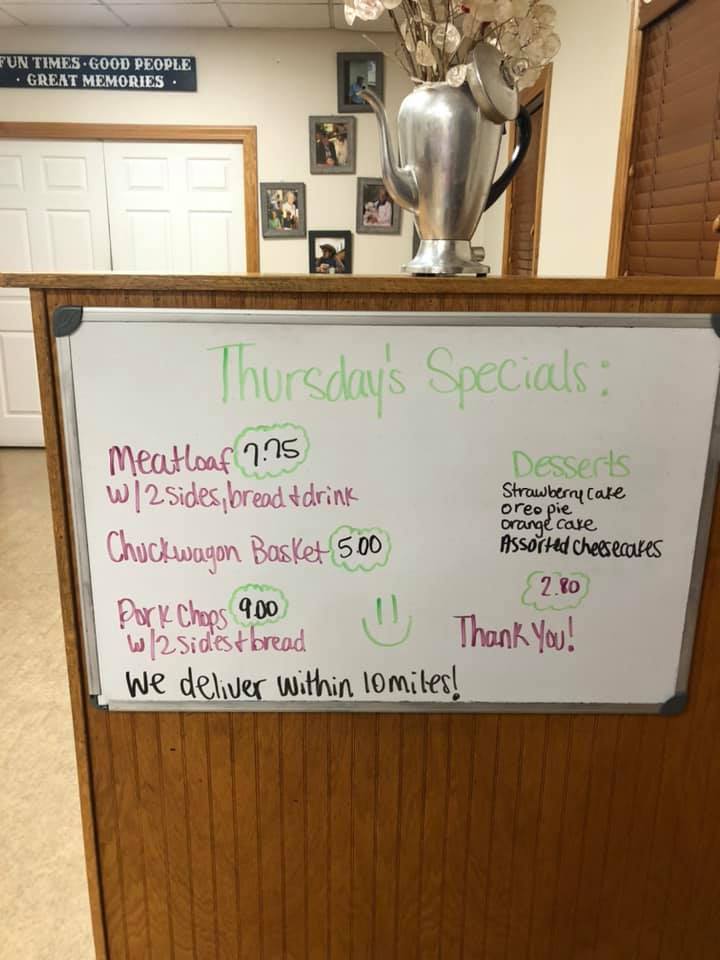 FUN TIMES · GOOD PEOPLE
· GREAT MEMORIES ·
Thursday's Specials:
Meatloaf 7.75
w/2 sides, bread + drink
Chuckwagon Basket 5.00
Pork Chops 9.00
w/2 sides + bread
We deliver within 10 miles!
Desserts
Strawberry Cake
oreo pie
orange cake
Assorted Cheesecakes
2.80
Thank You!